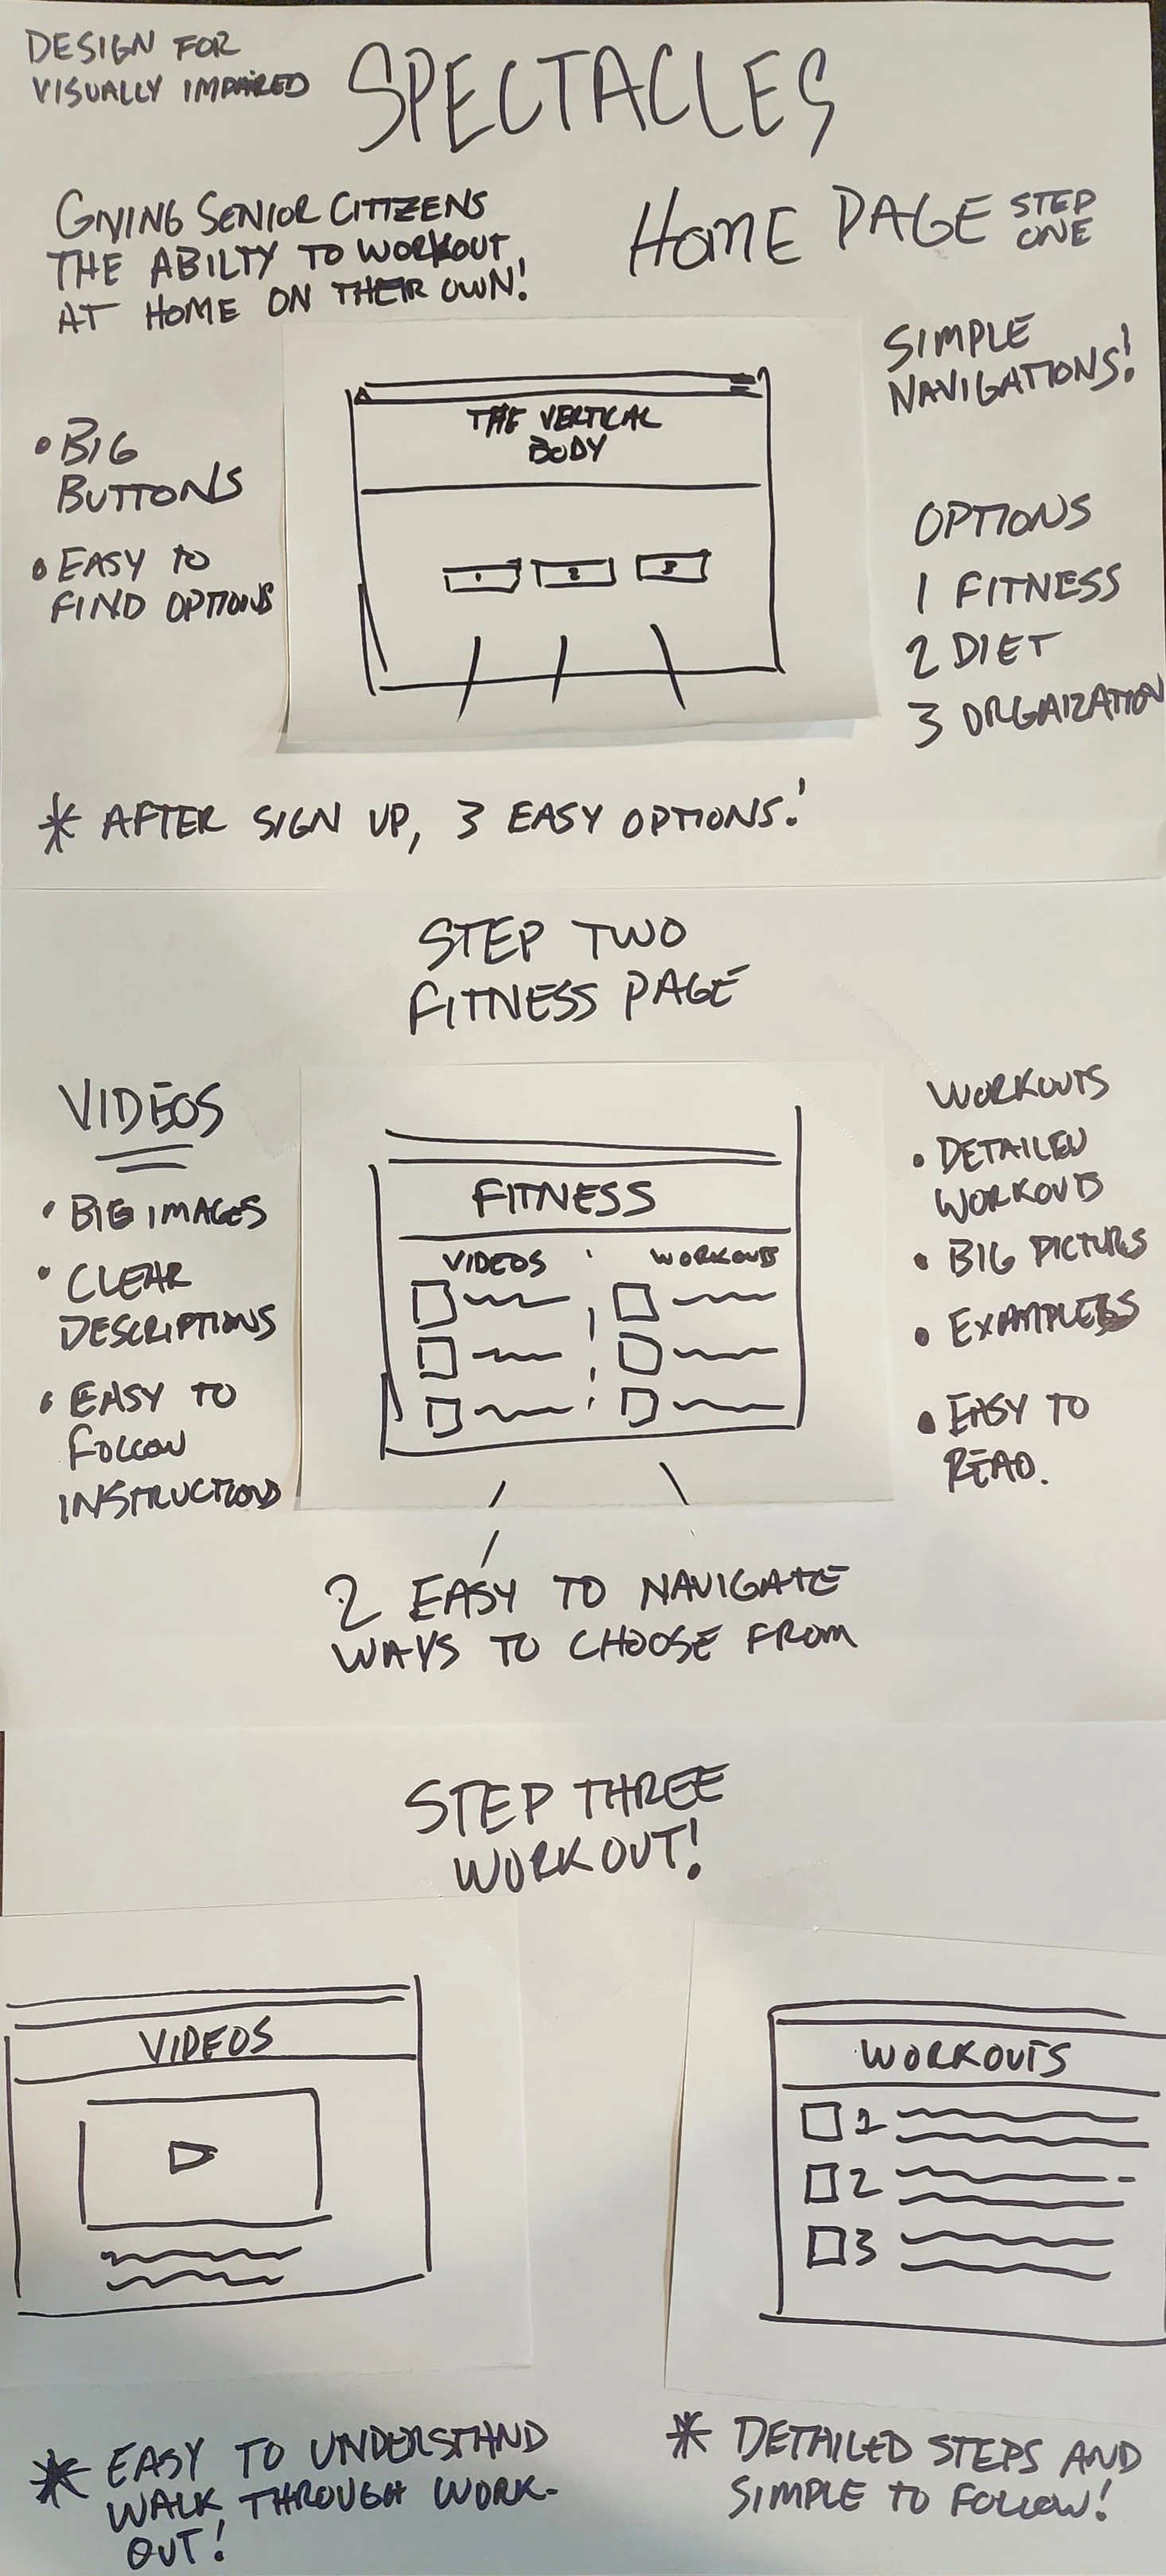 DESIGN FOR
VISUALLY IMPAIRED
SPECTACLES
GIVING SENIOR CITIZENS
THE ABILTY TO WORKOUT
AT HOME ON THEIR OWN!
HOME PAGE STEP
ONE
SIMPLE
NAVIGATIONS!
• BIG
BUTTONS
• EASY TO
FIND OPTIONS
THE VERTICAL
BODY
1 2 3
OPTIONS
1 FITNESS
2 DIET
3 ORGAIZATION
* AFTER SIGN UP, 3 EASY OPTIONS!
STEP TWO
FITNESS PAGE
VIDEOS
• BIG IMAGES
• CLEAR
DESCRIPTIONS
• EASY TO
FOLLOW
INSTRUCTIONS
FITNESS
VIDEOS WORKOUTS
WORKOUTS
• DETAILED
WORKOUTS
• BIG PICTURES
• EXAMPLES
• EASY TO
READ.
2 EASY TO NAVIGATE
WAYS TO CHOOSE FROM
STEP THREE
WORKOUT!
VIDEOS
WORKOUTS
1
2
3
* EASY TO UNDERSTAND
WALK THROUGH WORK-
OUT!
* DETAILED STEPS AND
SIMPLE TO FOLLOW!